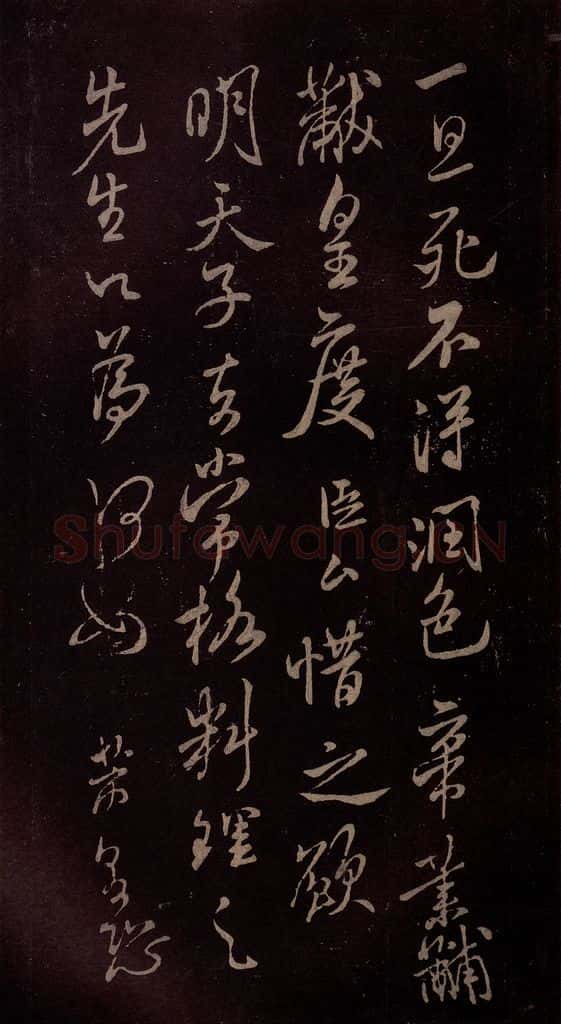 一旦死不得潤色帝業黼
黻皇度臣厶惜之願
明天子去常格料理之
先生以為何如 芾皇恐
Shufawang.CN